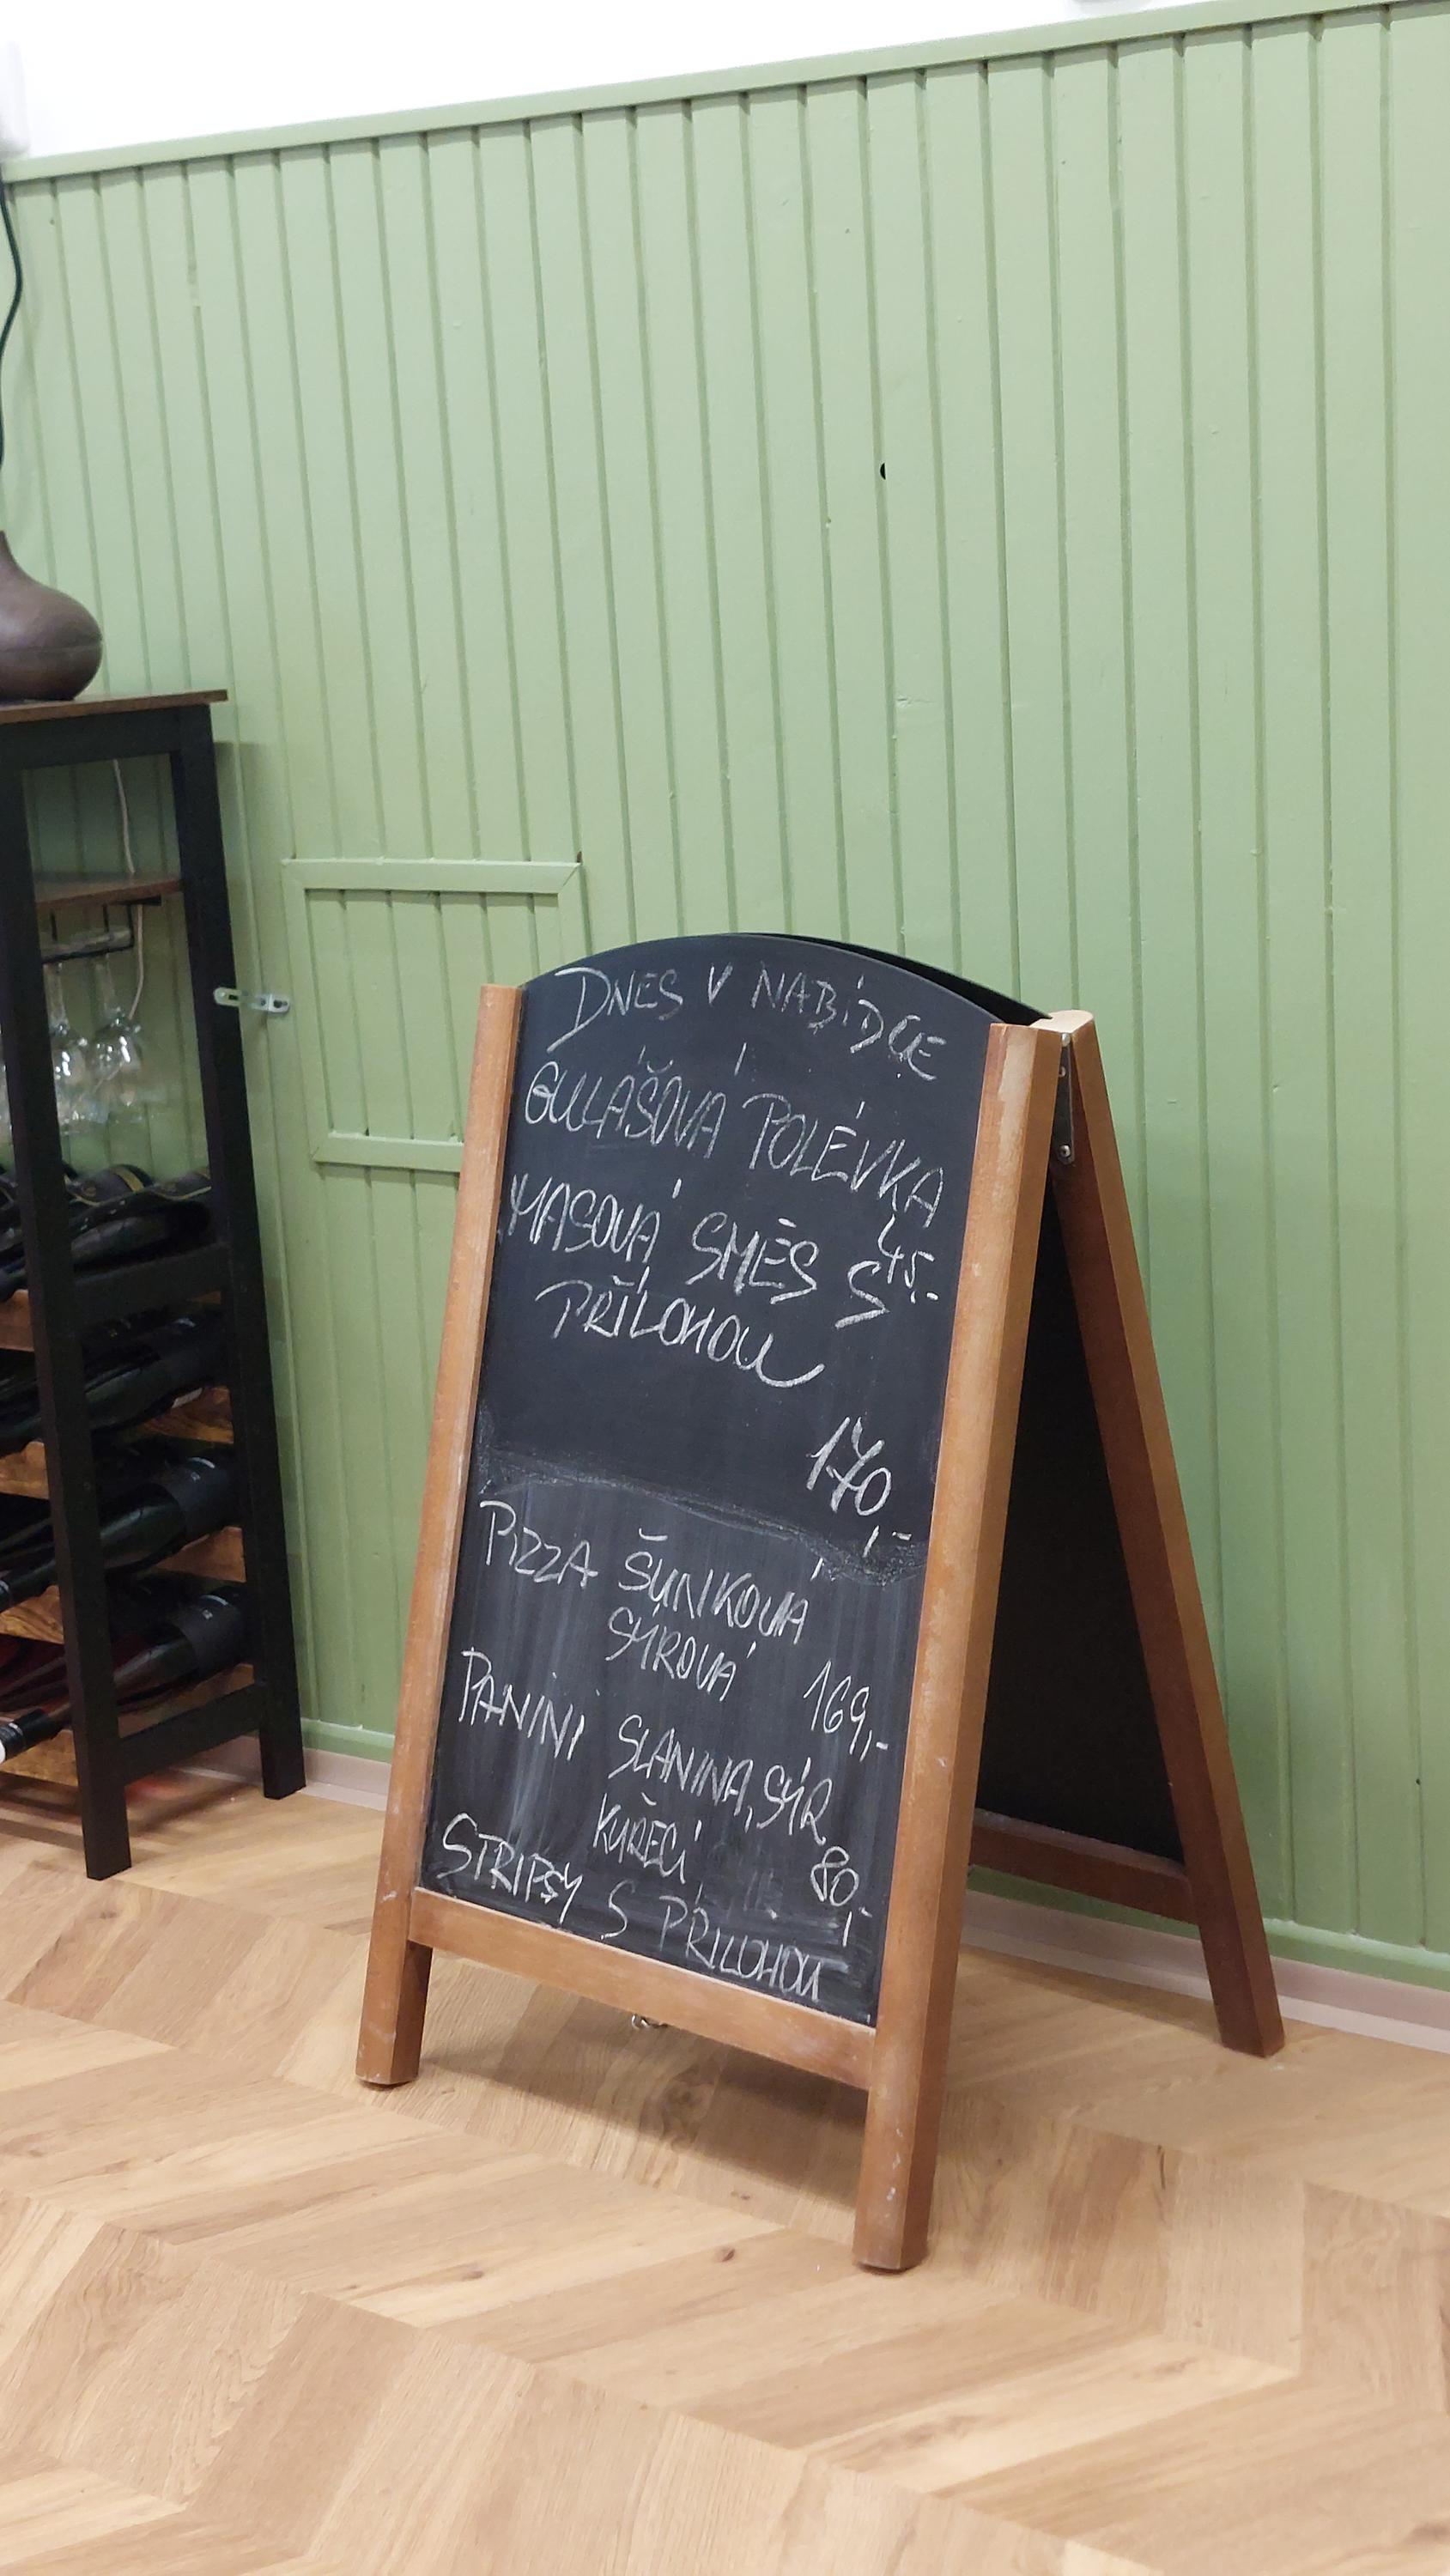 DNES V NABÍDCE
GULÁŠOVÁ POLÉVKA
45,-
MASOVÁ SMĚS S
PŘÍLOHOU
170,-
PIZZA ŠUNKOVÁ
SÝROVÁ 169,-
PANINI SLANINA, SÝR
KUŘECÍ 80,-
STRIPSY S PŘÍLOHOU